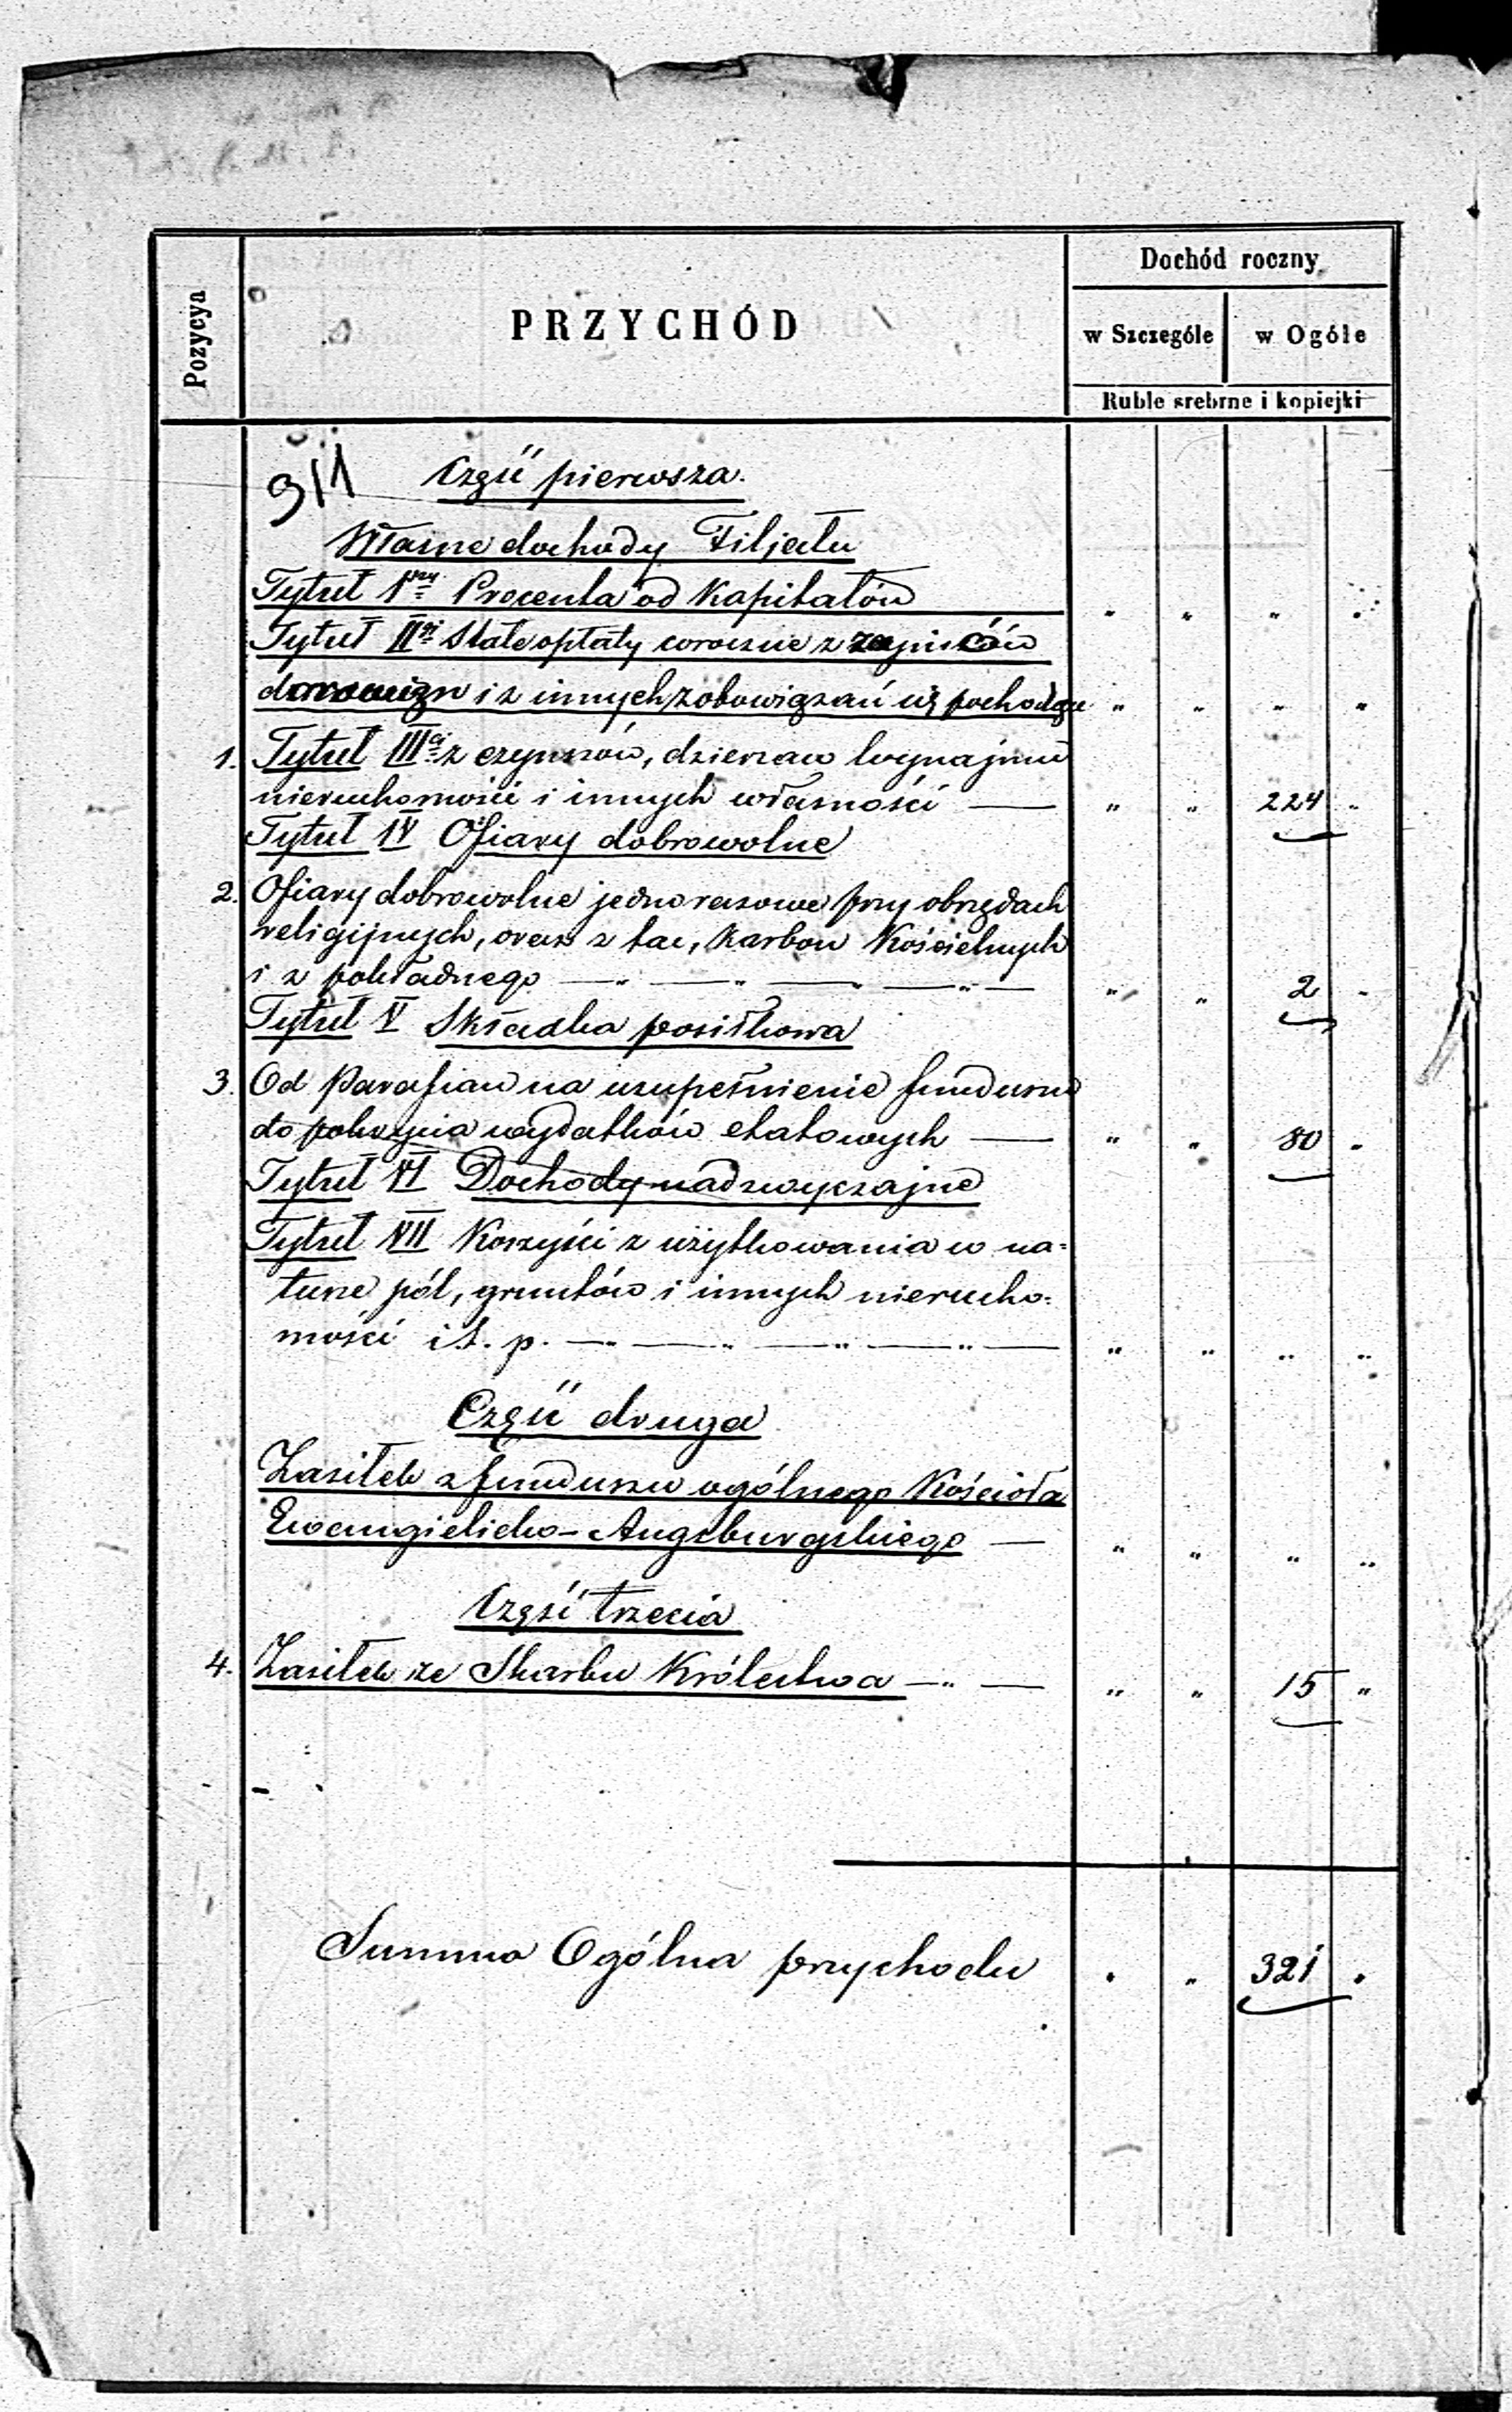 Pozycya
PRZYCHÓD
Dochód roczny
w Szczególe
w Ogóle
Ruble srebrne i kopiejki
911
Część pierwsza.
Własne dochody Filjału
Tytuł 1szy Procenta od Kapitałów " " " "
Tytuł IIgi Stałe opłaty coroczne z zapisów
darowizn i z innych zobowiązań się pochodzące " " " "
1. Tytuł IIIci z czynszów, dzierzaw wynajmu
nieruchomości i innych własności — " " 224 "
Tytuł IV Ofiary dobrowolne
2. Ofiary dobrowolne jednorazowe przy obrzędach
religijnych, oraz z tac, Karbon Kościelnych
i z pokładnego —"—"—"—"— " " 2 "
Tytuł V Składka posiłkowa
3. Od Parafian na uzupełnienie funduszu
do pokrycia wydatków etatowych — " " 80 "
Tytuł VI Dochody nadzwyczajne
Tytuł VII Korzyści z użytkowania w na=
turze pól, gruntów i innych nierucho=
mości i t. p. —"—"—"—"— " " " "
Część druga
Zasiłek z funduszu ogólnego Kościoła
Ewangielicko-Augsburgskiego — " " " "
Część trzecia
4. Zasiłek ze Skarbu Królestwa —"— " " 15 "
Summa Ogólna przychodu " " 321 "